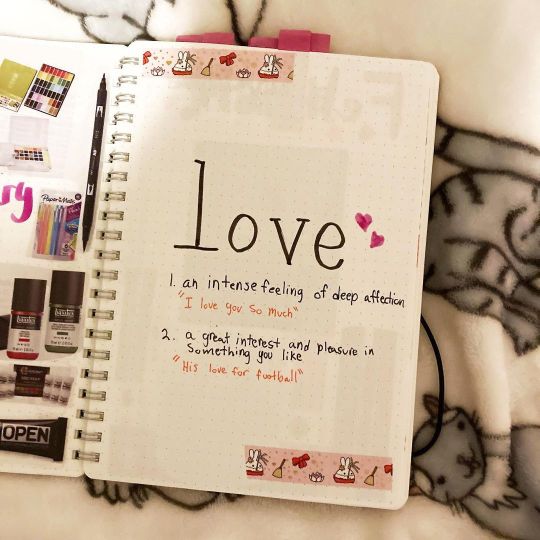 ry
Paper Mate
OPEN
love
1. an intense feeling of deep affection
"I love you so much"
2. a great interest and pleasure in
something you like
"His love for football"